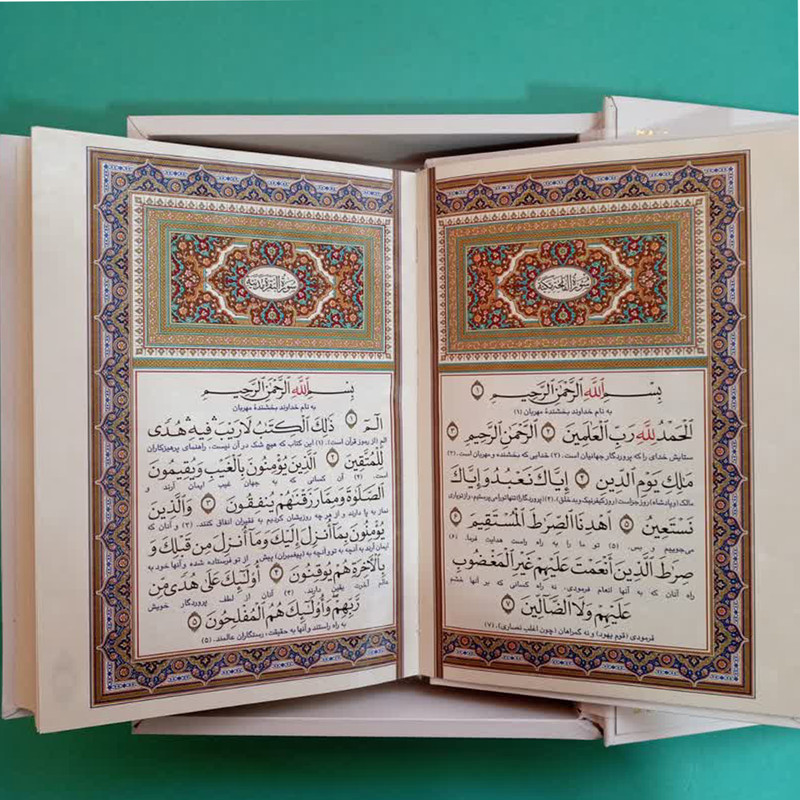 سورة الفاتحة مکیة
بِسْمِ اللَّهِ الرَّحْمٰنِ الرَّحِيمِ ١
به نام خداوند بخشندهٔ مهربان (۱)
الْحَمْدُ لِلَّهِ رَبِّ الْعَالَمِينَ ٢ الرَّحْمٰنِ الرَّحِيمِ ٣
ستایش خدای را که پروردگار جهانیان است. (۲) خدایی که بخشنده و مهربان است. (۳)
مَلِكِ يَوْمِ الدِّينِ ٤ إِيَّاكَ نَعْبُدُ وَإِيَّاكَ
مالک (و پادشاه) روز جزاست (روز کیفر نیک و بد خلق). (۴) (پروردگارا) تنها تو را می‌پرستیم، و از تو یاری
نَسْتَعِينُ ٥ اهْدِنَا الصِّرَاطَ الْمُسْتَقِيمَ ٦
می‌جوییم و بس. (۵) تو ما را به راه راست هدایت فرما. (۶)
صِرَاطَ الَّذِينَ أَنْعَمْتَ عَلَيْهِمْ غَيْرِ الْمَغْضُوبِ
راه آنان که به آنها انعام فرمودی، نه راه کسانی که بر آنها خشم
عَلَيْهِمْ وَلَا الضَّالِّينَ ٧
فرمودی (قوم یهود) و نه گمراهان (چون اغلب نصاری). (۷)
سورة البقرة مدنیة
بِسْمِ اللَّهِ الرَّحْمٰنِ الرَّحِيمِ
به نام خداوند بخشندهٔ مهربان
الم ١ ذَلِكَ الْكِتَبُ لَا رَيْبَ فِيهِ هُدًى
الم (از رموز قرآن است). (۱) این کتاب که هیچ شک در آن نیست، راهنمای پرهیزکاران
لِلْمُتَّقِينَ ٢ الَّذِينَ يُؤْمِنُونَ بِالْغَيْبِ وَيُقِيمُونَ
است. (۲) آن کسانی که به جهان غیب ایمان آرند و
الصَّلَوةَ وَمِمَّا رَزَقْنَهُمْ يُنفِقُونَ ٣ وَالَّذِينَ
نماز به پا دارند و از هر چه روزیشان کردیم به فقیران انفاق کنند. (۳) و آنان که
يُؤْمِنُونَ بِمَا أُنزِلَ إِلَيْكَ وَمَا أُنزِلَ مِن قَبْلِكَ وَ
ایمان آرند به آنچه به تو و آنچه به (پیغمبران) پیش از تو فرستاده شده و آنها خود به
بِالْآخِرَةِ هُمْ يُوقِنُونَ ٤ أُولَئِكَ عَلَى هُدًى مِن
عالم آخرت یقین دارند. (۴) آنان از لطف پروردگار خویش
رَبِّهِمْ وَأُولَئِكَ هُمُ الْمُفْلِحُونَ ٥
به راه راستند و آنها به حقیقت، رستگاران عالمند. (۵)